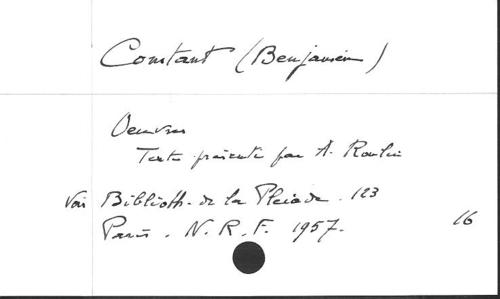 Constant (Benjamin)
Oeuvres
Texte présenté par A. Roulin
Voir Biblioth. de la Pleiade. 123
Paris. N. R. F. 1957.
16